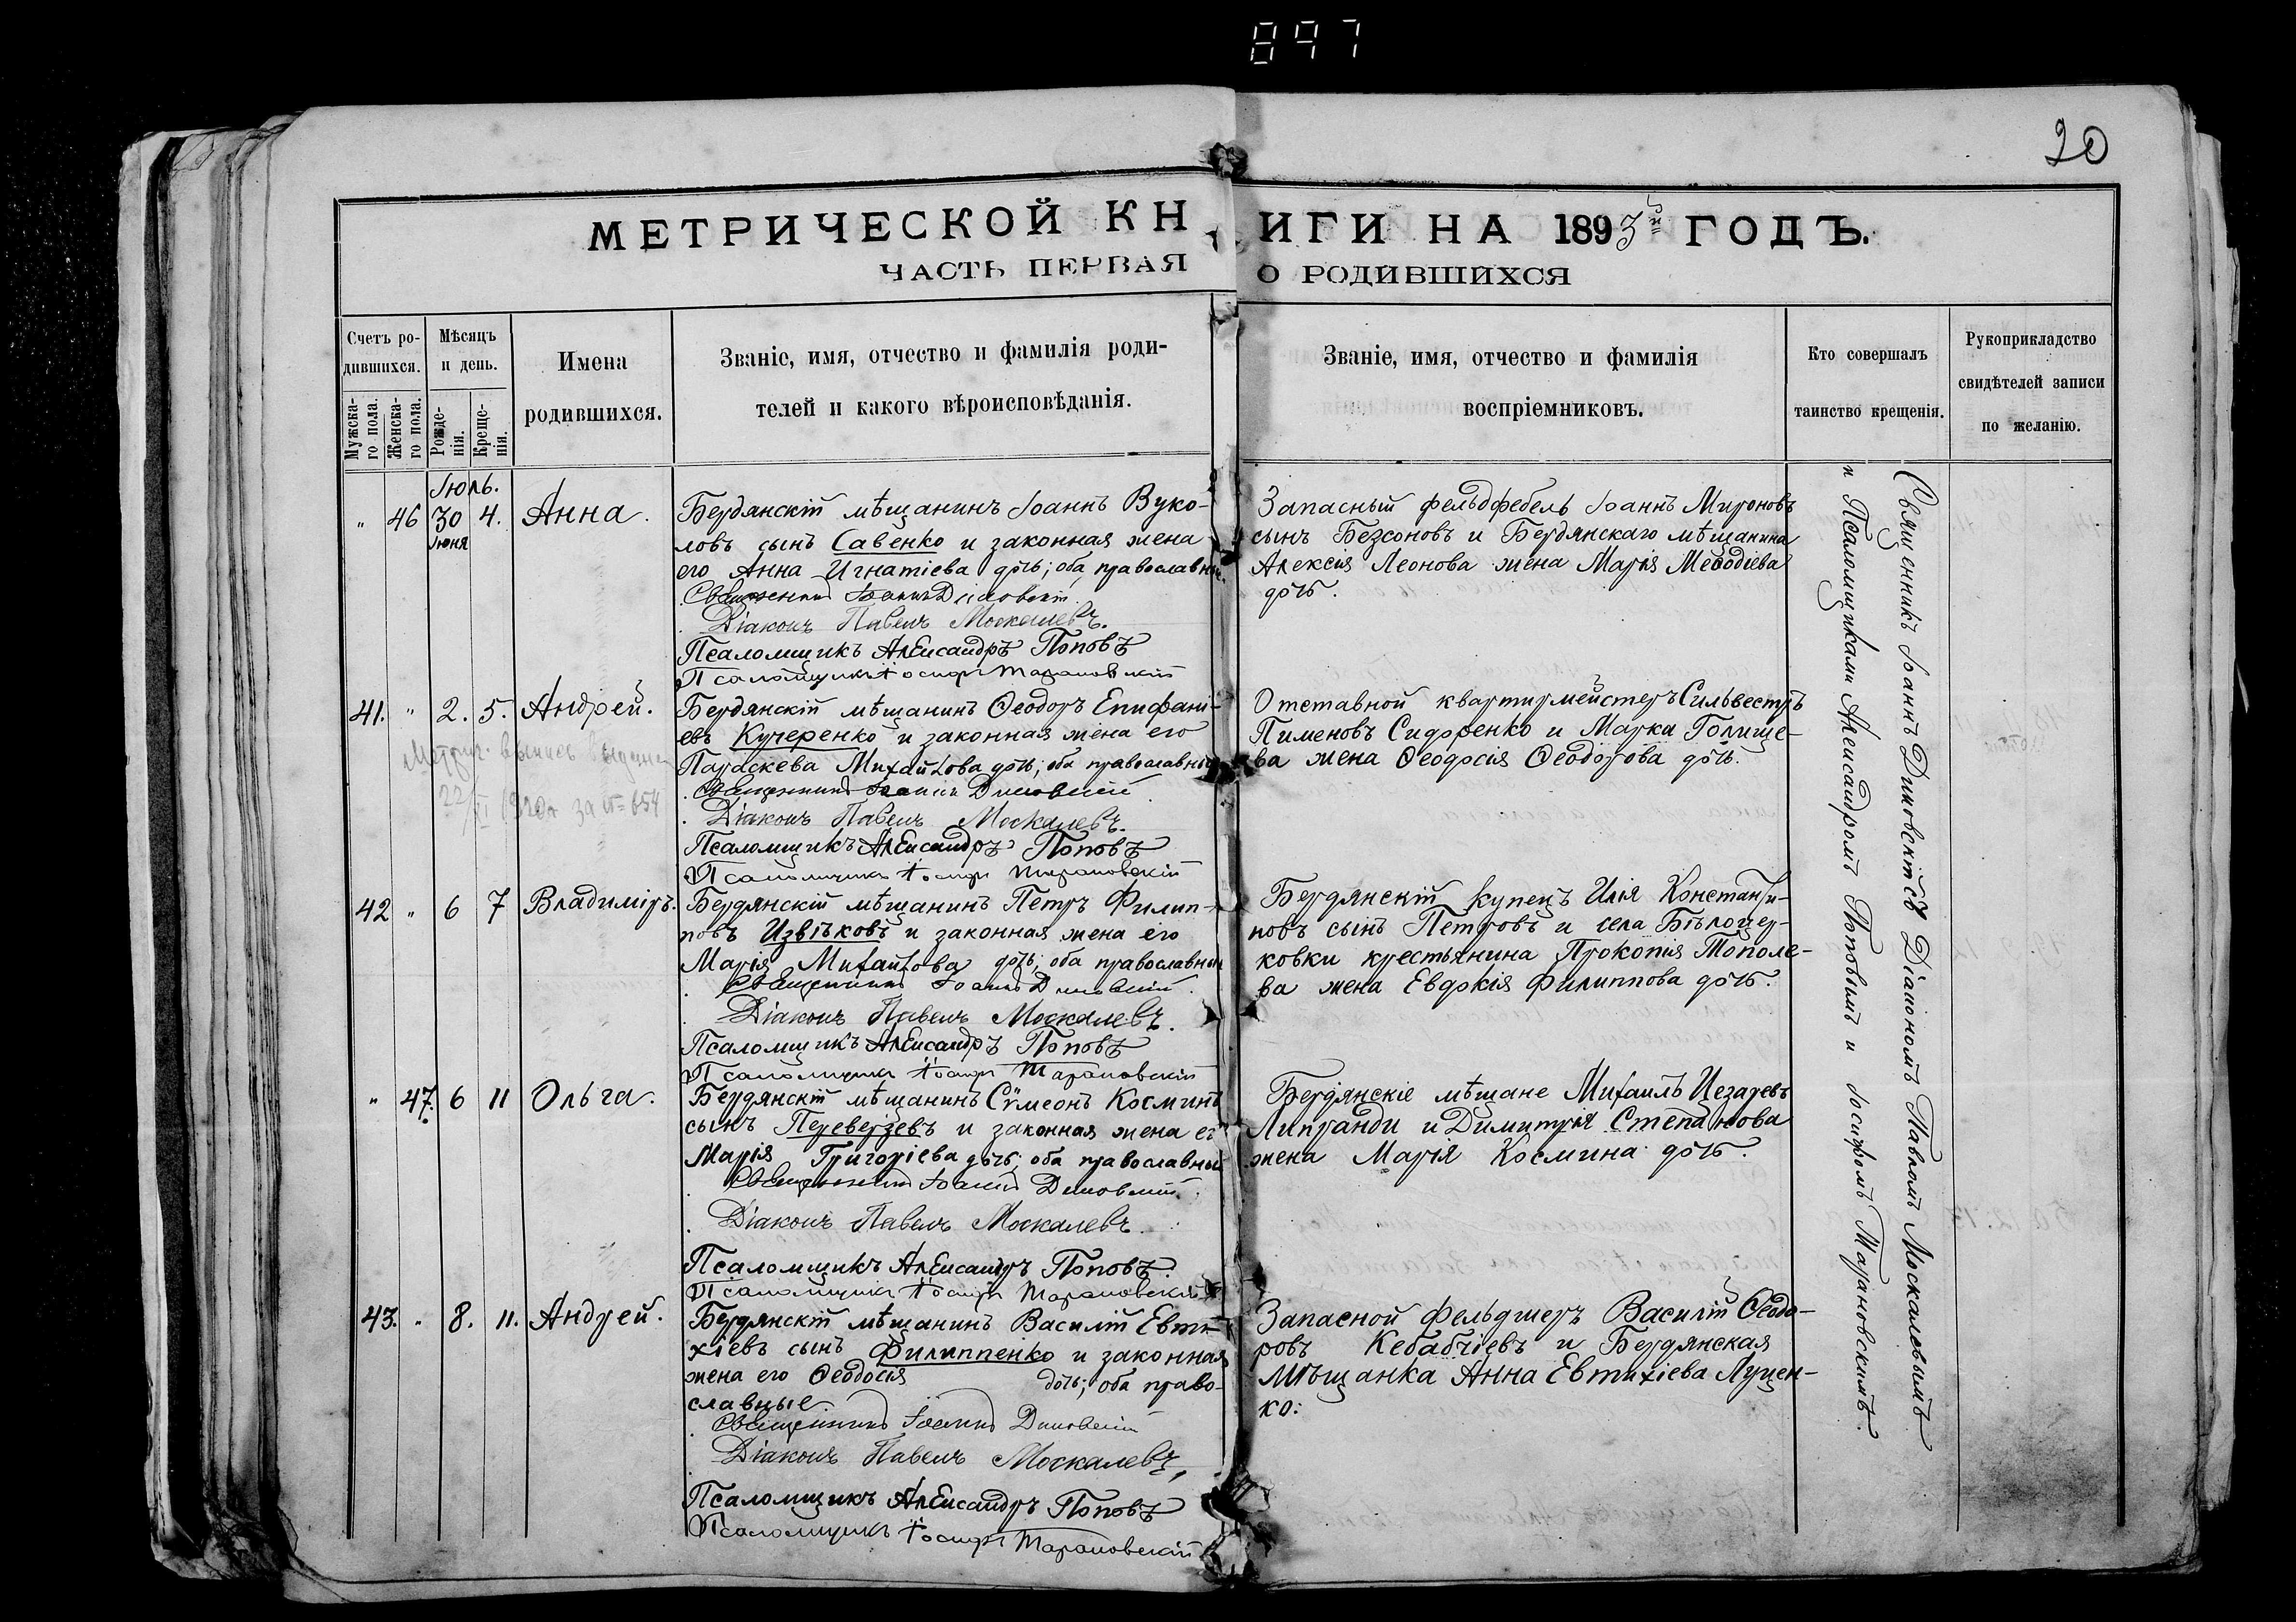 897
20
МЕТРИЧЕСКОЙ КНИГИ НА 1893й ГОДЪ.
ЧАСТЬ ПЕРВАЯ О РОДИВШИХСЯ
Счетъ ро-
дившихся.
Мужска-
го пола.
Женска-
го пола.
Мѣсяцъ
и день.
Рожде-
нія.
Креще-
нія.
Имена
родившихся.
Званіе, имя, отчество и фамилія роди-
телей и какого вѣроисповѣданія.
Званіе, имя, отчество и фамилія
воспріемниковъ.
Кто совершалъ
таинство крещенія.
Рукоприкладство
свидѣтелей записи
по желанію.
Іюль.
" 46 30 4. Анна.
Іюня
Бердянскій мѣщанинъ Іоаннъ Вуко-
ловъ сынъ Савенко и законная жена
его Анна Игнатіева дочь; оба православные
Священникъ Іоаннъ Диковскій
Діаконъ Павелъ Москалевъ.
Псаломщикъ Александръ Поповъ
Псаломщикъ Іосифъ Тарановскій
Запасный фельдфебель Іоаннъ Мироновъ
сынъ Безсоновъ и Бердянскаго мѣщанина
Алексія Леонова жена Марія Меѳодіева
дочь.
41. " 2. 5. Андрей.
Метрич. выпись выдана
22/XI за № 654
Бердянскій мѣщанинъ Ѳеодоръ Епифані-
евъ Кучеренко и законная жена его
Параскева Михайлова дочь; оба православные
Священникъ Іоаннъ Диковскій
Діаконъ Павелъ Москалевъ.
Псаломщикъ Александръ Поповъ
Псаломщикъ Іосифъ Тарановскій
Отставной квартирмейстеръ Сильвестръ
Пименовъ Сидоренко и Марка Голище-
ва жена Ѳеодосія Ѳеодорова дочь.
42 " 6 7 Владиміръ.
Бердянскій мѣщанинъ Петръ Филип-
повъ Извѣковъ и законная жена его
Марія Михайлова дочь; оба православные
Священникъ Іоаннъ Диковскій.
Діаконъ Павелъ Москалевъ.
Псаломщикъ Александръ Поповъ
Псаломщикъ Іосифъ Тарановскій
Бердянскій купецъ Илія Константи-
новъ сынъ Петровъ и села Бѣлоцер-
ковки крестьянина Прокопія Тополе-
ва жена Евдокія Филиппова дочь.
" 47. 6 11 Ольга.
Бердянскій мѣщанинъ Сѵмеонъ Косминъ
сынъ Переверзевъ и законная жена его
Марія Григоріева дочь; оба православные
Священникъ Іоаннъ Диковскій.
Діаконъ Павелъ Москалевъ.
Псаломщикъ Александръ Поповъ.
Псаломщикъ Іосифъ Тарановскій
Бердянскіе мѣщане Михаилъ Цезаревъ
Липранди и Димитрія Степанова
жена Марія Космина дочь.
43. " 8. 11. Андрей.
Бердянскій мѣщанинъ Василій Евти-
хіевъ сынъ Филиппенко и законная
жена его Ѳеодосія дочь; оба право-
славные.
Священникъ Іоаннъ Диковскій
Діаконъ Павелъ Москалевъ,
Псаломщикъ Александръ Поповъ
Псаломщикъ Іосифъ Тарановскій
Запасной фельдшеръ Василій Ѳеодо-
ровъ Кебабчіевъ и Бердянская
мѣщанка Анна Евтихіева Луцен-
ко:
Священникъ Іоаннъ Диковскій съ Діакономъ Павломъ Москалевымъ
и Псаломщиками Александромъ Поповымъ и Іосифомъ Тарановскимъ.